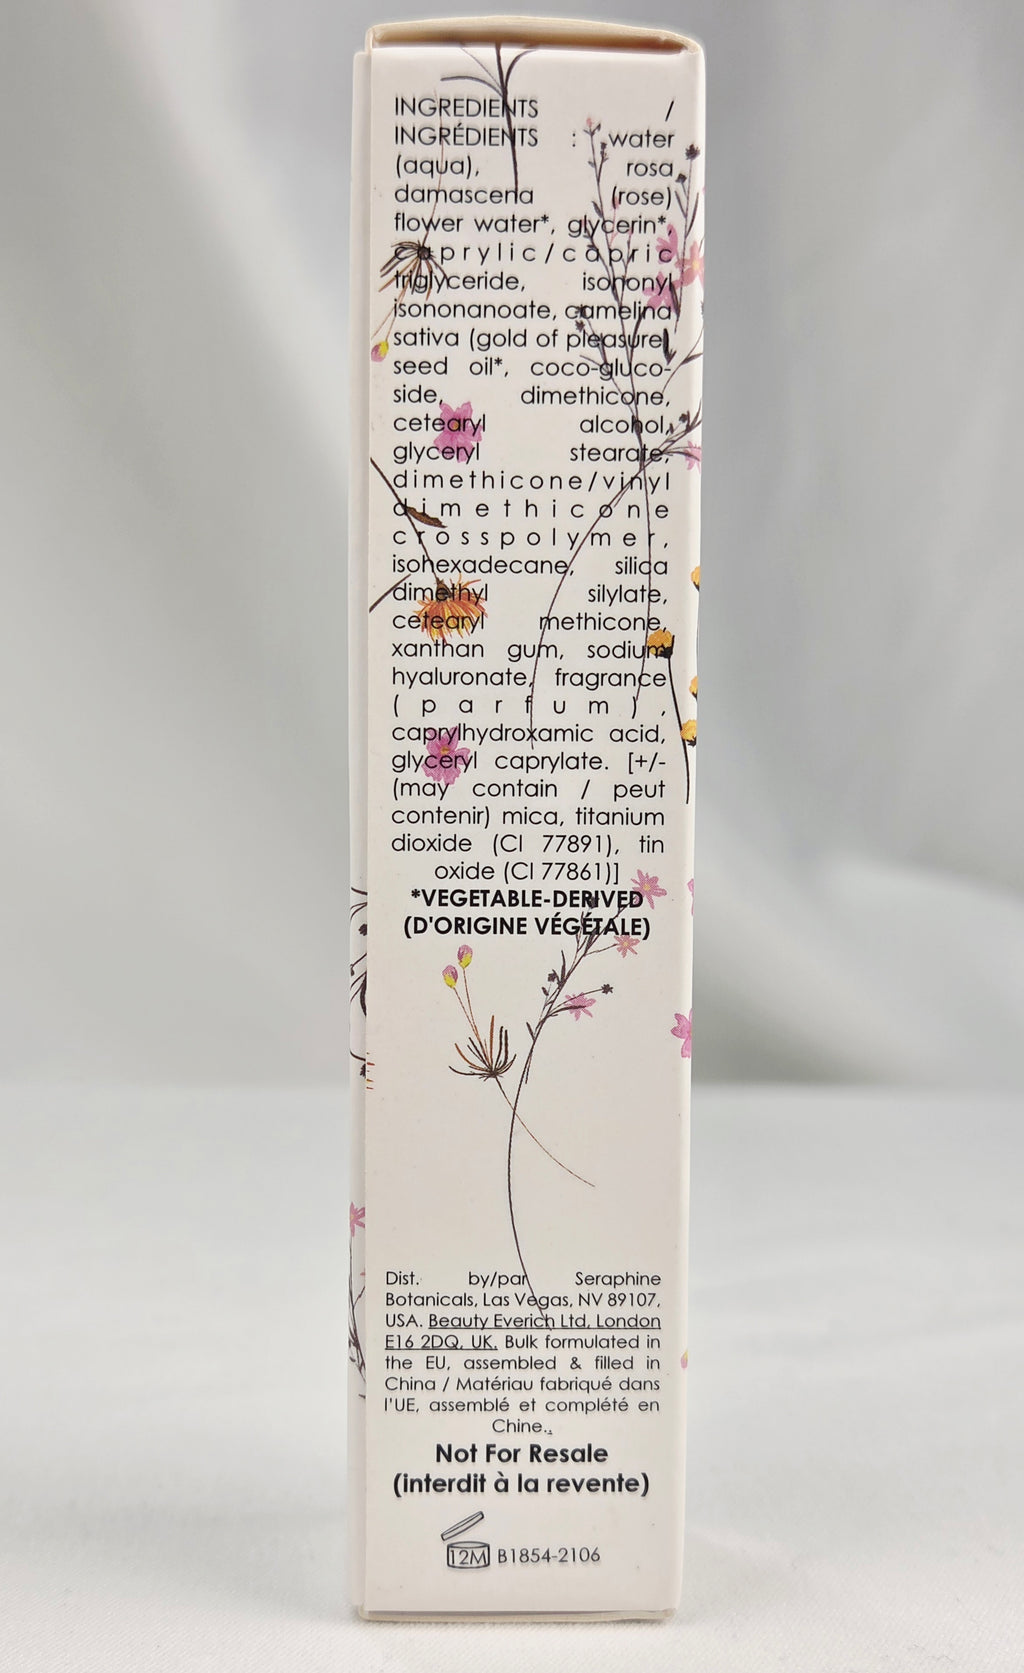 INGREDIENTS /
INGRÉDIENTS : water
(aqua), rosa
damascena (rose)
flower water*, glycerin*,
caprylic/capric
triglyceride, isononyl
isononanoate, camelina
sativa (gold of pleasure)
seed oil*, coco-gluco-
side, dimethicone,
cetearyl alcohol,
glyceryl stearate,
dimethicone/vinyl
dimethicone
crosspolymer,
isohexadecane, silica
dimethyl silylate,
cetearyl methicone,
xanthan gum, sodium
hyaluronate, fragrance
(parfum),
caprylhydroxamic acid,
glyceryl caprylate. [+/-
(may contain / peut
contenir) mica, titanium
dioxide (CI 77891), tin
oxide (CI 77861)]
*VEGETABLE-DERIVED
(D'ORIGINE VÉGÉTALE)
Dist. by/par Seraphine
Botanicals, Las Vegas, NV 89107,
USA. Beauty Everich Ltd, London
E16 2DQ, UK. Bulk formulated in
the EU, assembled & filled in
China / Matériau fabriqué dans
l'UE, assemblé et complété en
Chine..
Not For Resale
(interdit à la revente)
12M B1854-2106